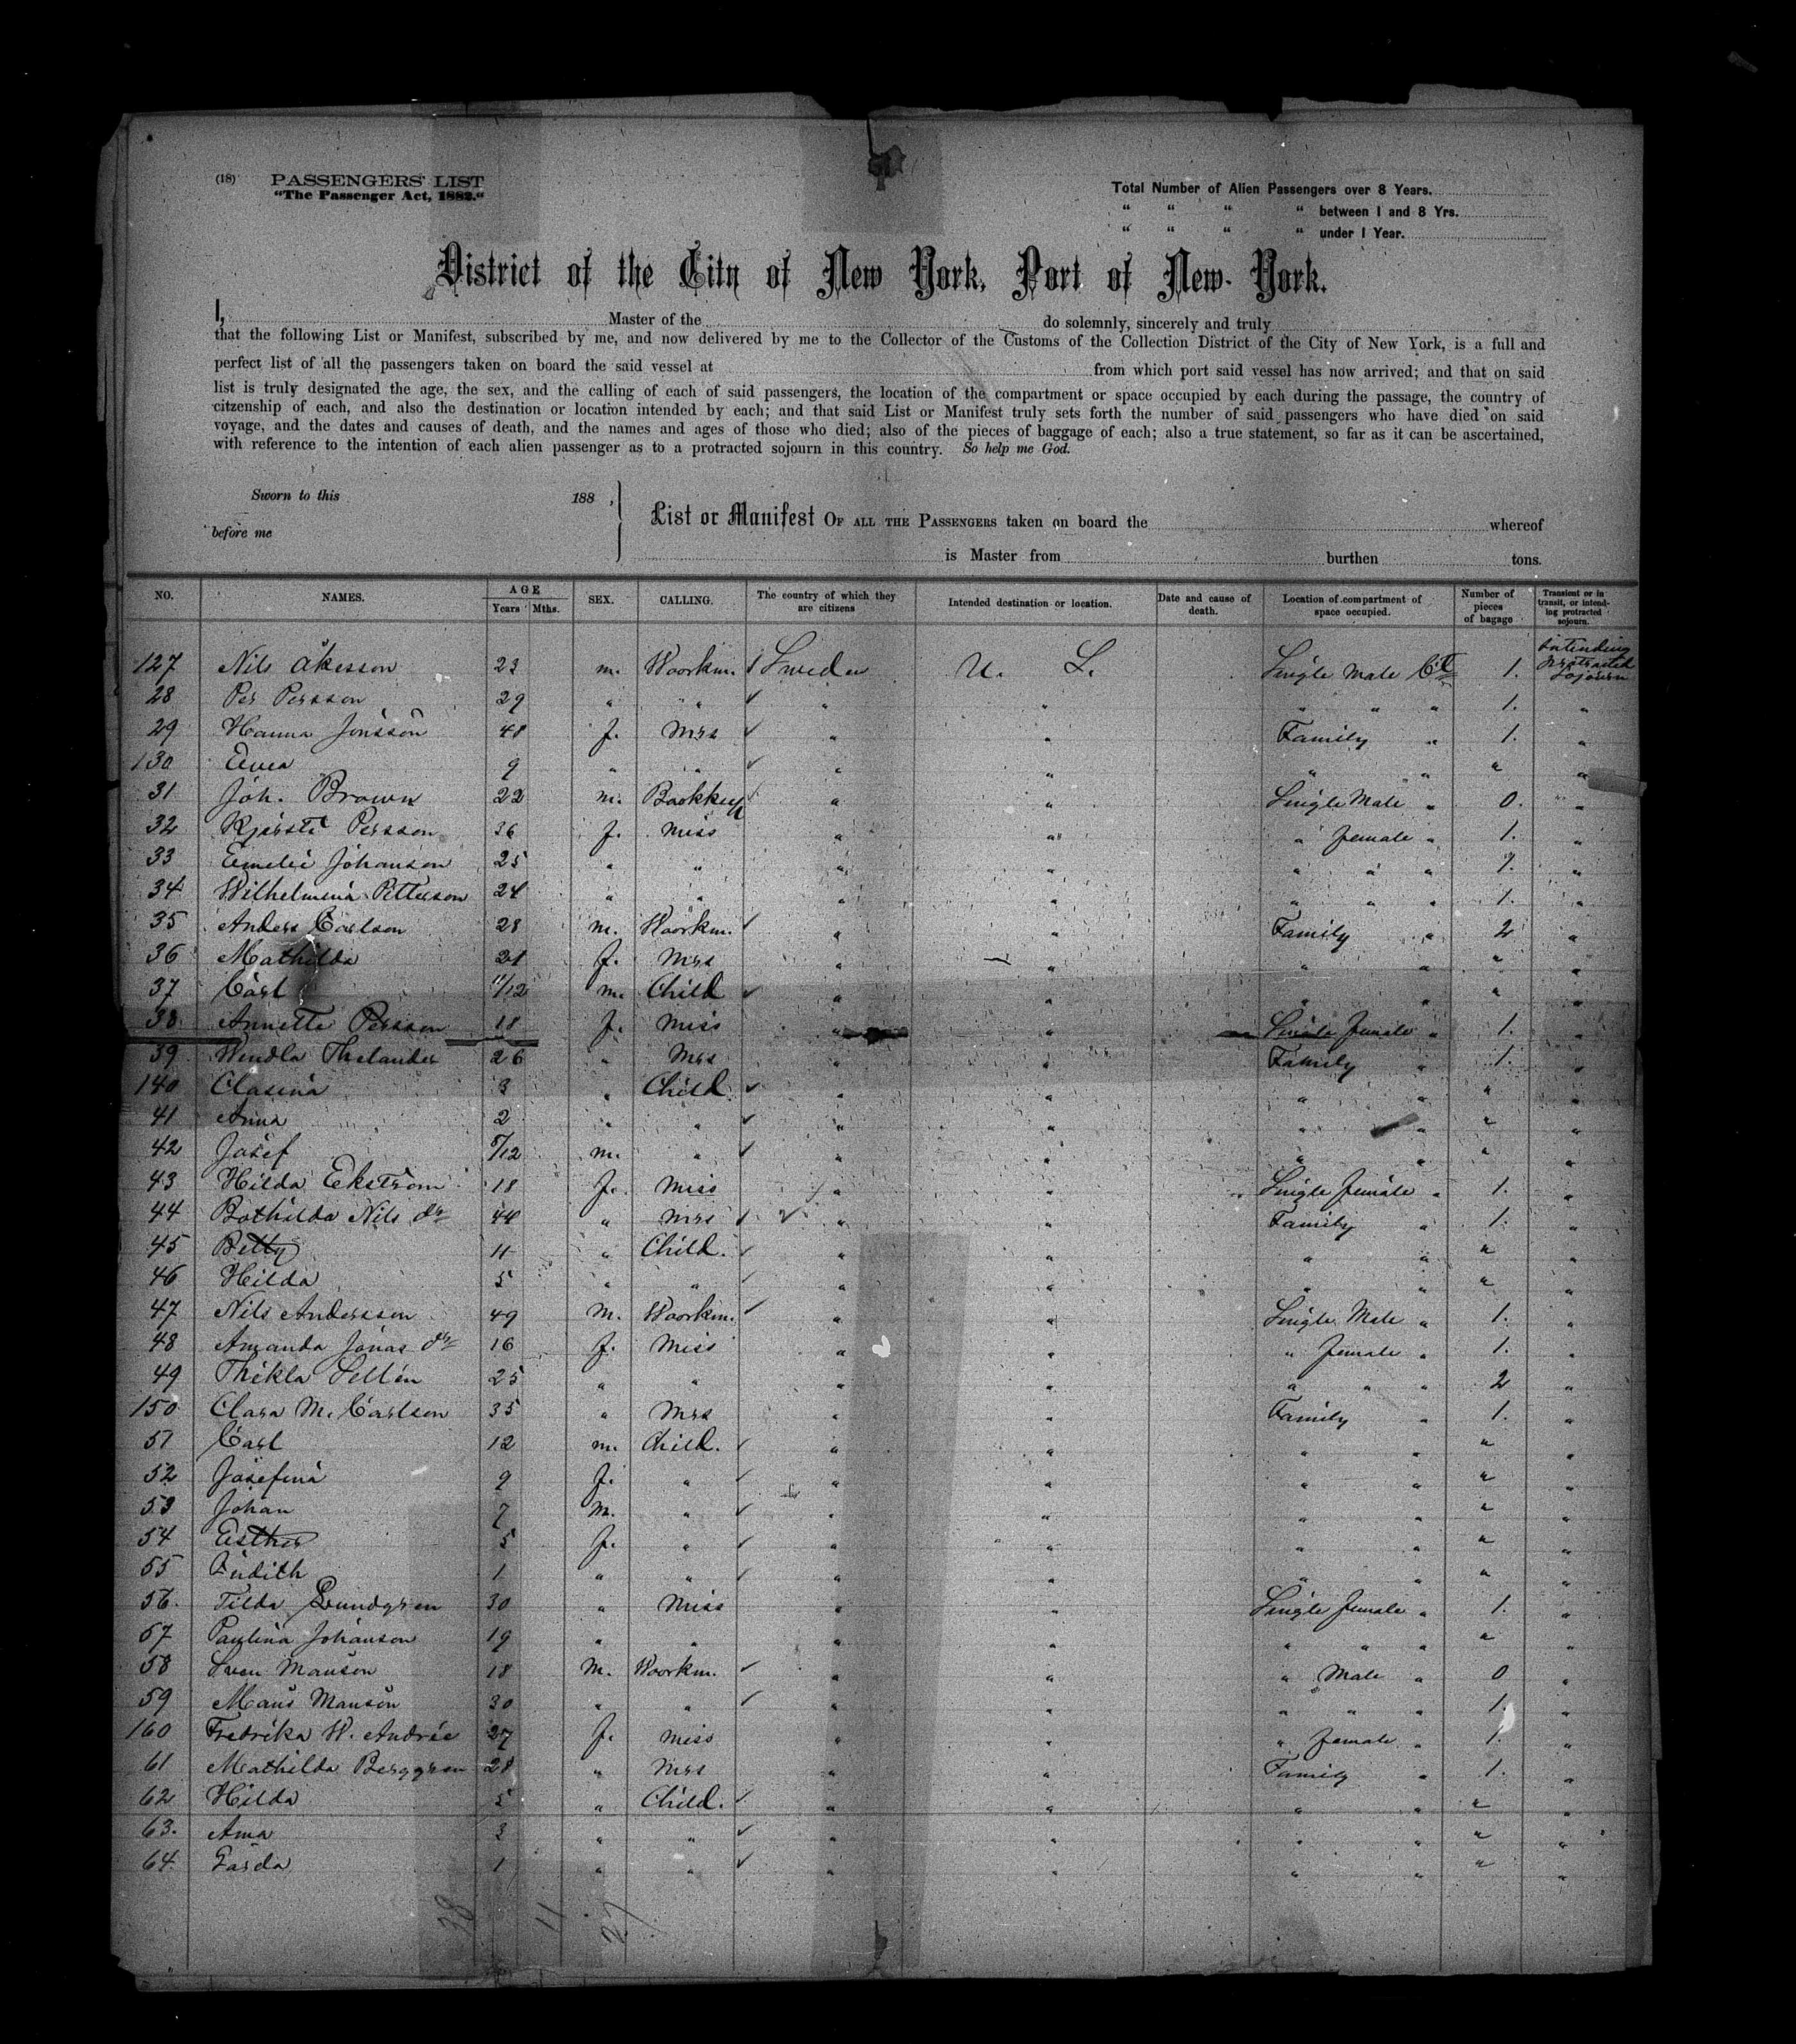 (18) PASSENGERS' LIST
"The Passenger Act, 1882."
Total Number of Alien Passengers over 8 Years.
" " " " between 1 and 8 Yrs.
" " " " under 1 Year.
District of the City of New York, Port of New-York.
I, Master of the do solemnly, sincerely and truly
that the following List or Manifest, subscribed by me, and now delivered by me to the Collector of the Customs of the Collection District of the City of New York, is a full and
perfect list of all the passengers taken on board the said vessel at from which port said vessel has now arrived; and that on said
list is truly designated the age, the sex, and the calling of each of said passengers, the location of the compartment or space occupied by each during the passage, the country of
citzenship of each, and also the destination or location intended by each; and that said List or Manifest truly sets forth the number of said passengers who have died on said
voyage, and the dates and causes of death, and the names and ages of those who died; also of the pieces of baggage of each; also a true statement, so far as it can be ascertained,
with reference to the intention of each alien passenger as to a protracted sojourn in this country. So help me God.
Sworn to this 188 ,
before me
List or Manifest OF ALL THE PASSENGERS taken on board the whereof
is Master from burthen tons.
NO. NAMES. AGE Years Mths. SEX. CALLING. The country of which they are citizens Intended destination or location. Date and cause of death. Location of compartment of space occupied. Number of pieces of bagage Transient or in transit, or intending protracted sojourn.
127 Nils Åkesson 23 m. Woorkm. Sweden U. S. Single Male 1. Intending protracted Sojourn
28 Per Persson 29 " " " " " " " 1. "
29 Hanna Jönsson 48 f. Mrs " " Family " 1. "
130 9 " " " " " " " "
31 Joh. Brown 22 m. Bookkep " " Single Male " 0. "
32 Kjersti Persson 36 f. Miss " " " female " 1. "
33 Emelie Johanson 25 " " " " " " " 1. "
34 Wilhelmina Petterson 24 " " " " " " " 1. "
35 Anders Carlson 28 m. Woorkm. " " Family " 2 "
36 Mathilda 21 f. Mrs " " " " " "
37 Carl 11/12 m. Child " " " " " "
38 Annette Persson 18 f. Miss " " Single female " 1. "
39 Wendla Thelander 26 " Mrs " " Family " 1. "
140 Clasina 3 " Child " " " " " "
41 Anna 2 " " " " " " " "
42 Josef 8/12 m. " " " " " " "
43 Hilda Ekström 18 f. Miss " " Single female " 1. "
44 Bothilda Nils dr 44 " Mrs " " Family " 1. "
45 Betty 11 " Child. " " " " " "
46 Hilda 5 " " " " " " " "
47 Nils Andersson 49 m. Woorkm. " " Single Male " 1. "
48 Amanda Jonas dr 16 f. Miss " " " female " 1. "
49 Thekla Sellén 25 " " " " " " " 2 "
150 Clara M. Carlson 35 " Mrs " " Family " 1. "
51 Carl 12 m. Child. " " " " " "
52 Josefina 9 f. " " " " " " "
53 Johan 7 m. " " " " " " "
54 Esther 5 f. " " " " " " "
55 Judith 1 " " " " " " " "
56. Tilda Lundgren 30 " Miss " " Single female " 1. "
57 Paulina Johanson 19 " " " " " " " " "
58 Sven Manson 18 m. Woorkm. " " " Male " 0 "
59 Mans Manson 30 " " " " " " " 1. "
160 Fredrika W. Andrée 27 f. Miss " " " female " 1. "
61 Mathilda Berggren 28 " Mrs " " Family " 1. "
62 Hilda 5 " Child. " " " " " "
63. Ama 3 " " " " " " " "
64. Garda 1 " " " " " " " "
38 11 27